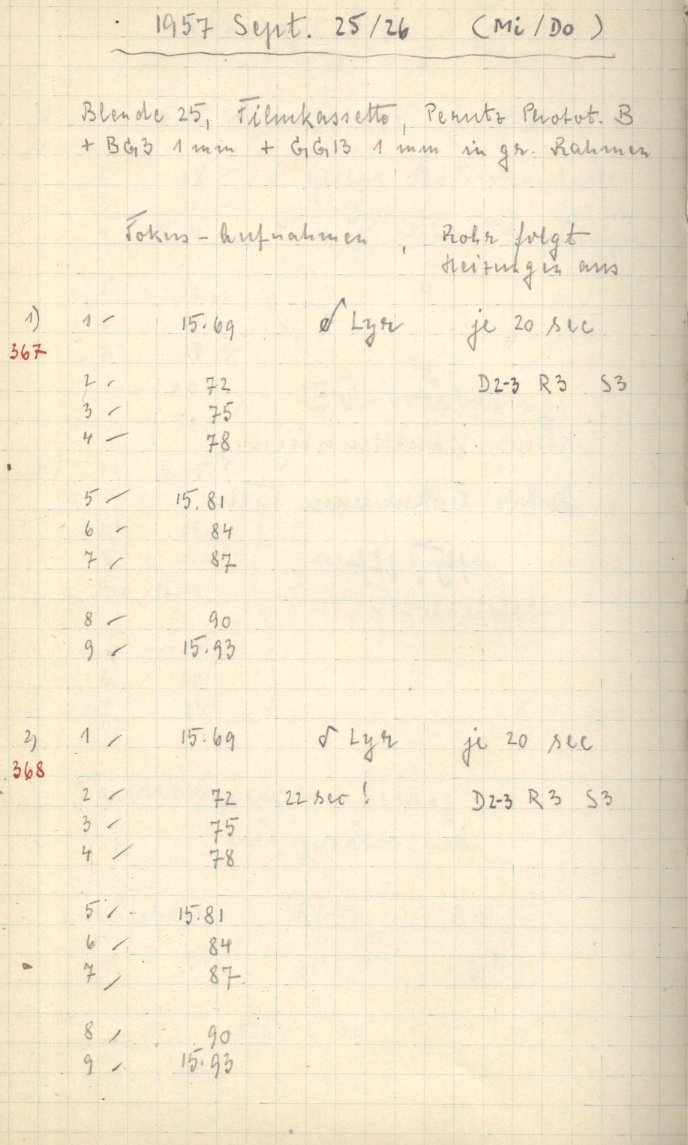 1957 Sept. 25/26 (Mi/Do)
Blende 25, Filmkassette, Perutz Photot. B
+ BG3 1 mm + GG13 1 mm in gr. Rahmen
Fokus-Aufnahmen, Rohr folgt
Heizungen aus
1) 1 - 15.69 δ Lyr je 20 sec
367
2 - 72 D2-3 R3 S3
3 - 75
4 - 78
5 - 15.81
6 - 84
7 - 87
8 - 90
9 - 15.93
2) 1 - 15.69 δ Lyr je 20 sec
368
2 - 72 22 sec! D2-3 R3 S3
3 - 75
4 - 78
5 - 15.81
6 - 84
7 - 87
8 - 90
9 - 15.93